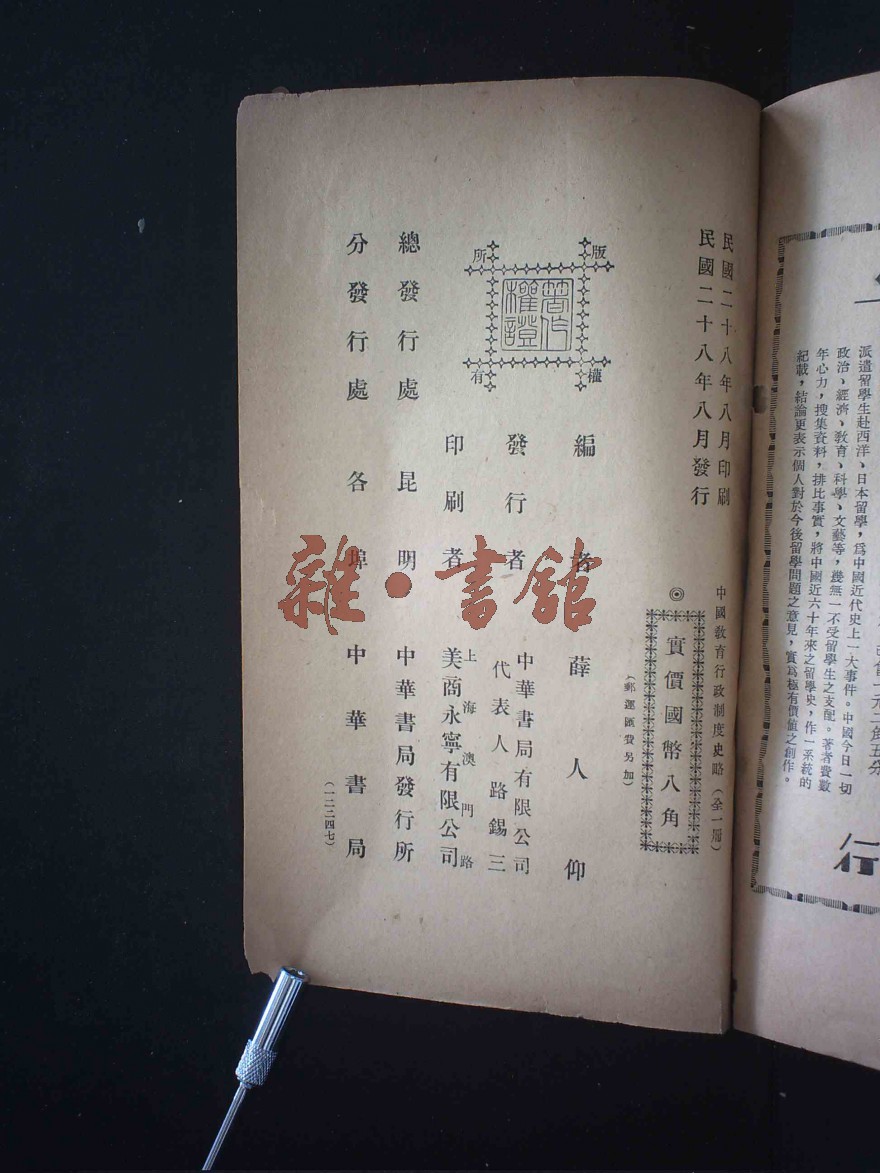 民國二十八年八月印刷
民國二十八年八月發行
中國教育行政制度史略（全一册）
◎
實價國幣八角
（郵運匯費另加）
版權所有
著作權證
編者 薛人仰
發行者 中華書局有限公司
代表人路錫三
印刷者 上海澳門路
美商永寧有限公司
總發行處 昆明 中華書局發行所
分發行處 各埠 中華書局
（一二二四七）
雜·書館
派遣留學生赴西洋、日本留學，爲中國近代史上一大事件。中國今日一切
政治、經濟、教育、科學、文藝等，幾無一不受留學生之支配。著者費數
年心力，搜集資料，排比事實，將中國近六十年來之留學史，作一系統的
紀載，結論更表示個人對於今後留學問題之意見，實爲極有價値之創作。
一元二角五分
行